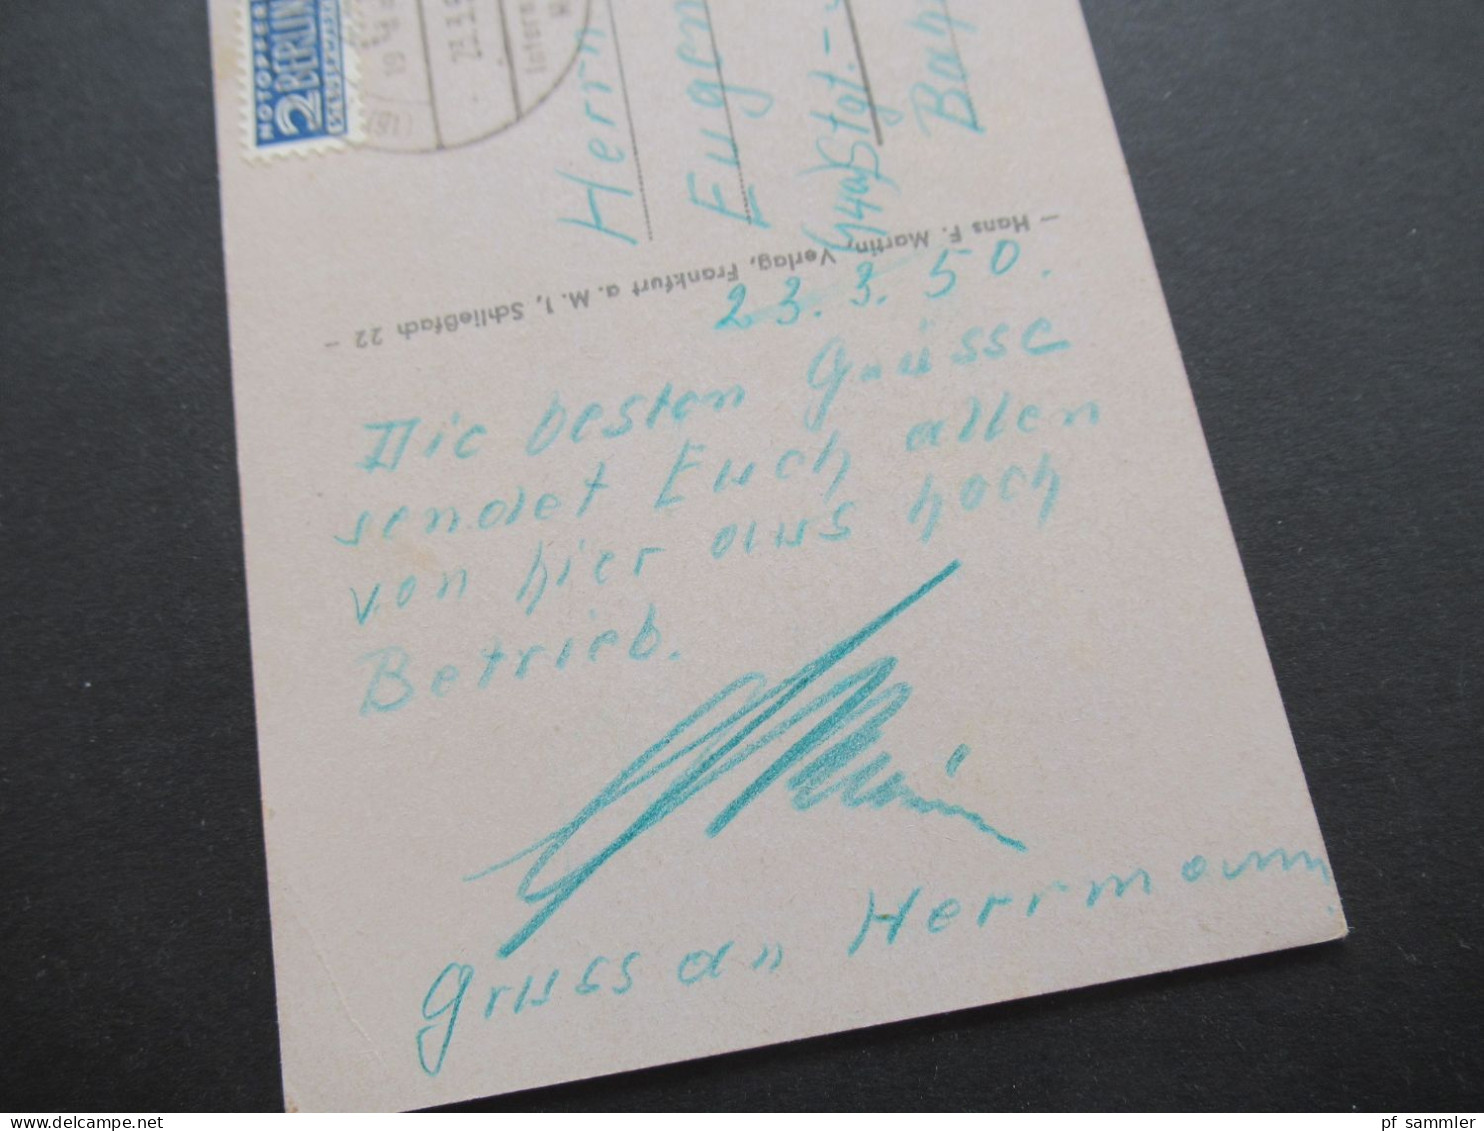 NOTOPFER
2 BERLIN
STEUERMARKE
Herrn
Eugen
(14a) Stgt.-
— Hans F. Martin, Verlag, Frankfurt a. M. 1, Schließfach 22 —
23.3.50.
Die besten Grüsse
sendet Euch allen
von hier aus hoch
Betrieb.
Gruss an Herrmann
pf sammler